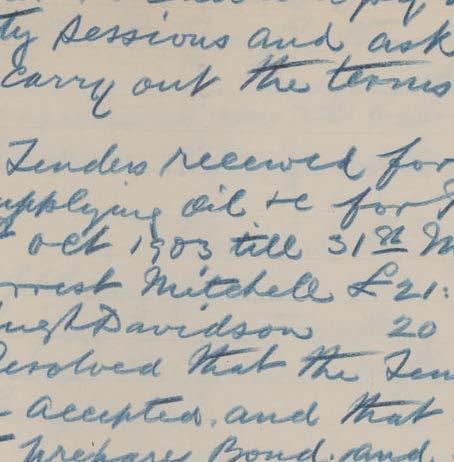 ty Sessions and ask
carry out the terms
Tenders received for
upplying oil &c for
oct 1903 till 31st M
rrest Mitchell £21:
ugh Davidson 20
Resolved that the Ten
accepted. and that
prepare Bond. and.